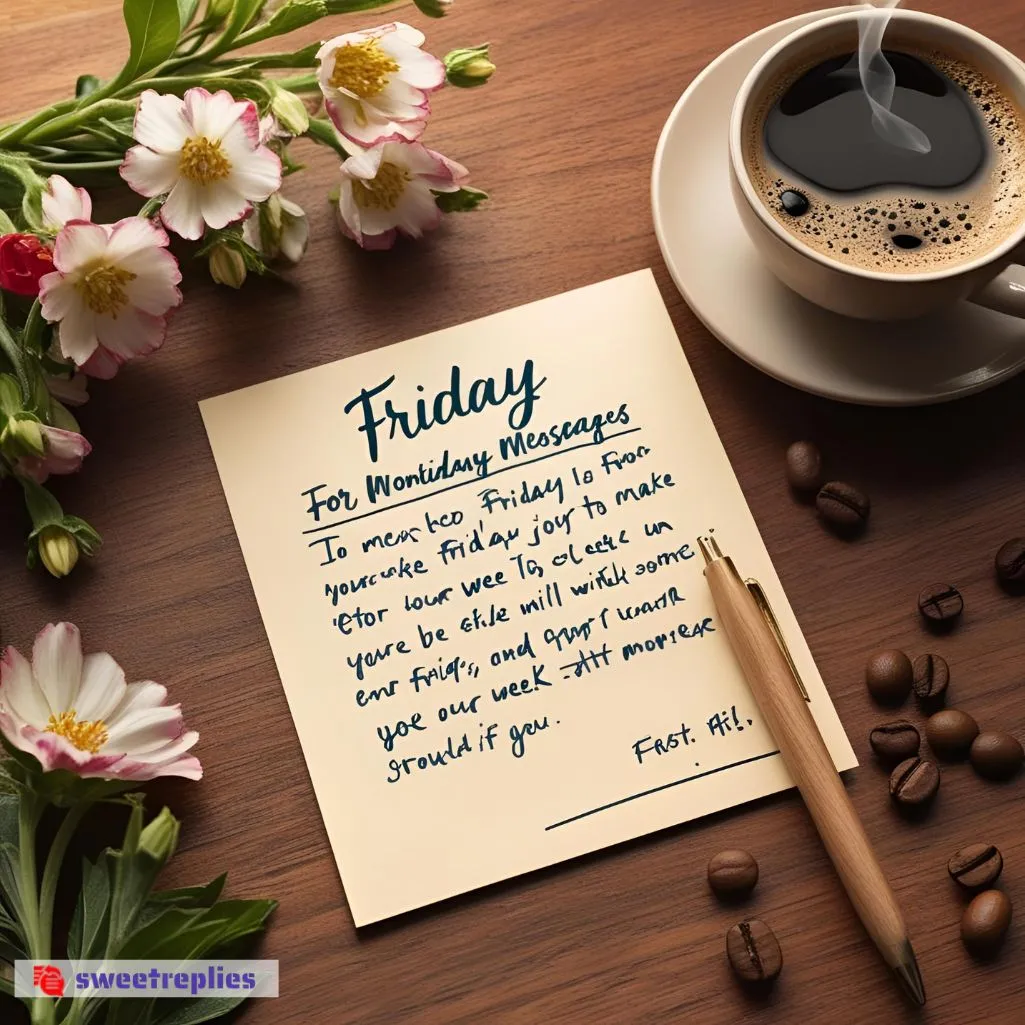 Friday
For Montiday Messcages
To mesx too Friday Io Fron
yourcuke frid'ay joy to make
etor lour wee To, clecte un
yourve be stile will witik some
enr fniigs, and
yoe our week morese
srould if geu.
Frst. Ail.
sweetreplies